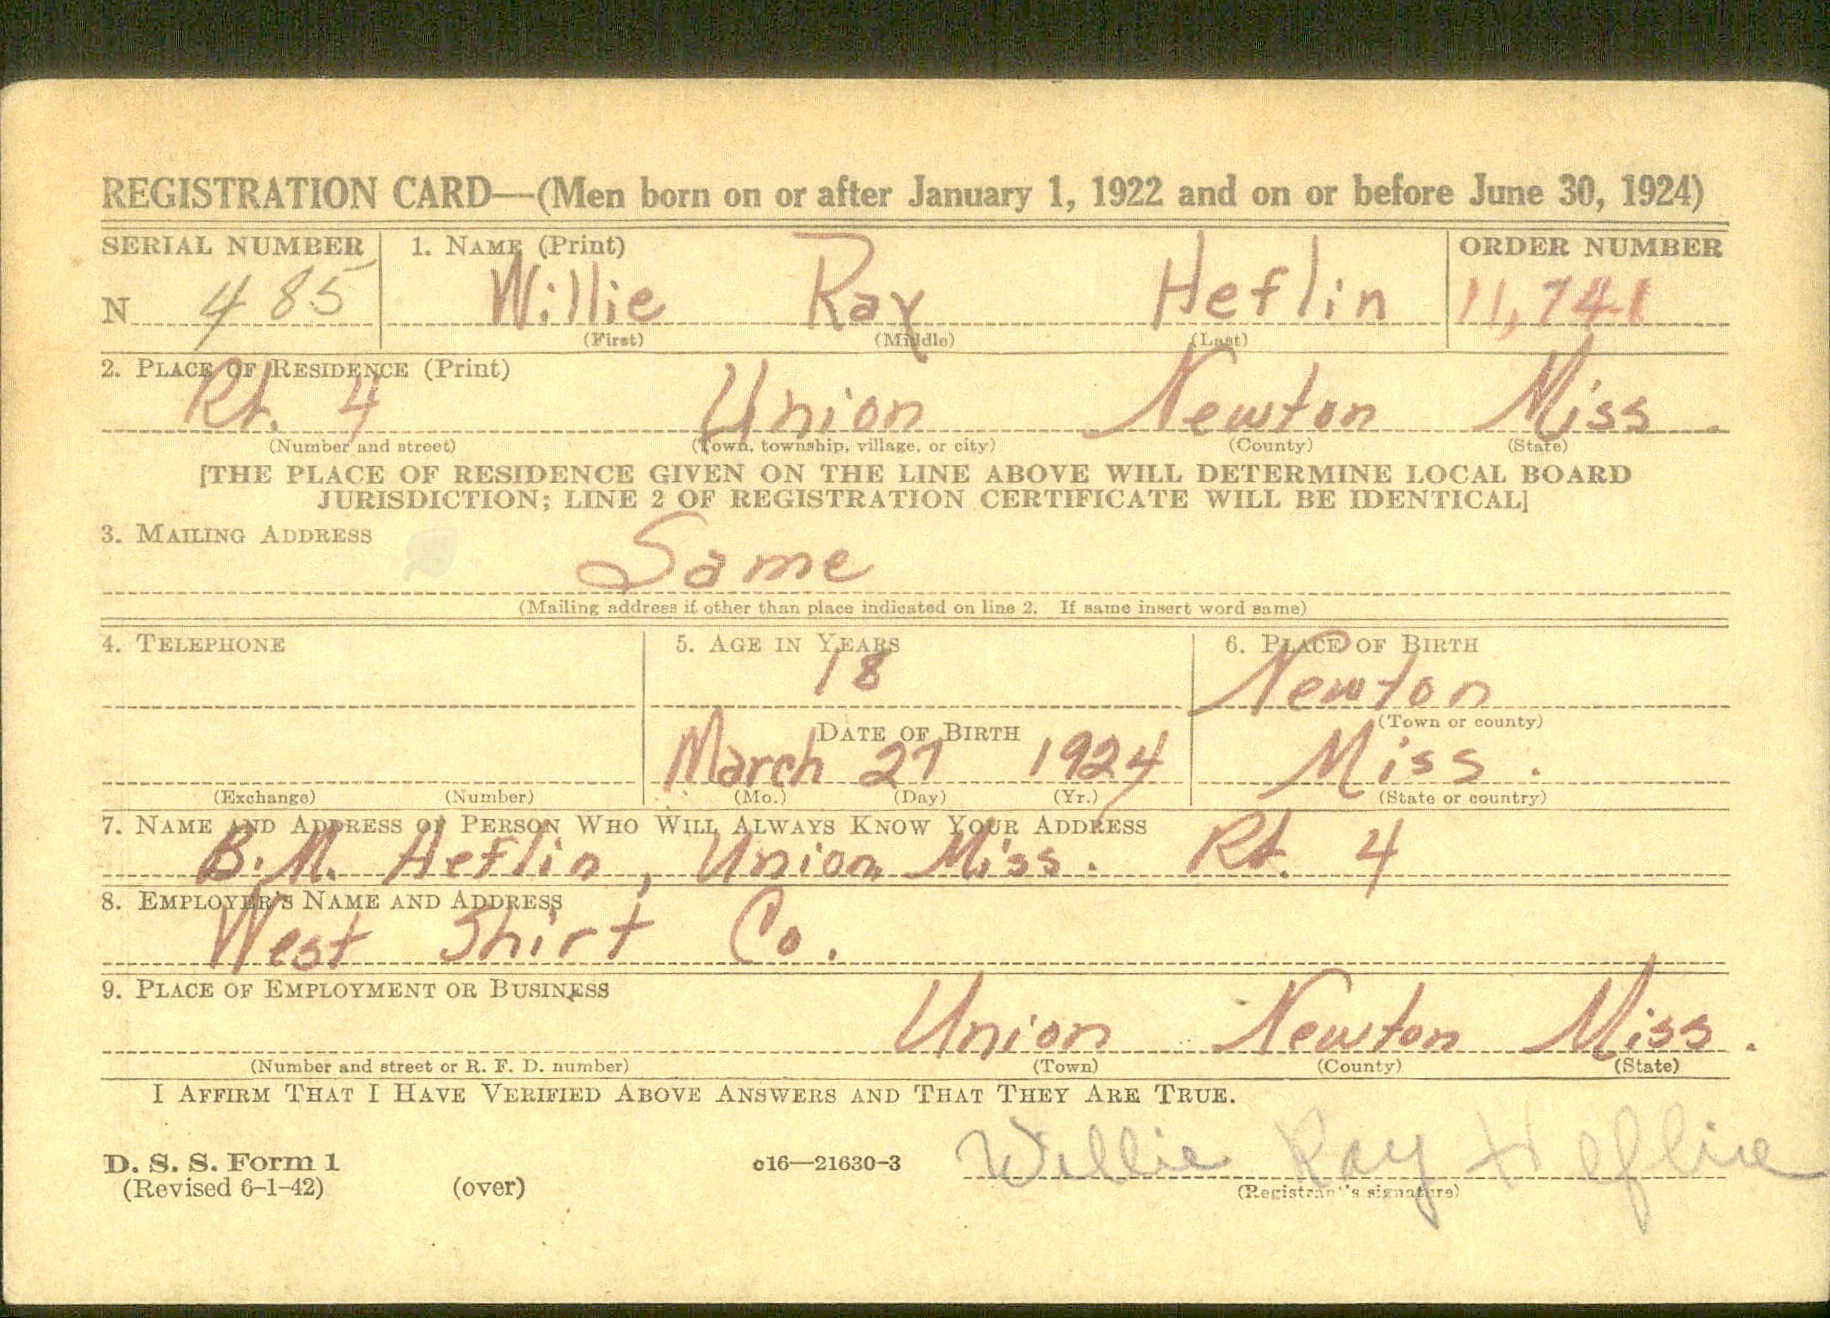 REGISTRATION CARD—(Men born on or after January 1, 1922 and on or before June 30, 1924)
SERIAL NUMBER 1. NAME (Print) ORDER NUMBER
N 485 Willie Ray Heflin 11,741
(First) (Middle) (Last)
2. PLACE OF RESIDENCE (Print)
Rt. 4 Union Newton Miss.
(Number and street) (Town, township, village, or city) (County) (State)
[THE PLACE OF RESIDENCE GIVEN ON THE LINE ABOVE WILL DETERMINE LOCAL BOARD
JURISDICTION; LINE 2 OF REGISTRATION CERTIFICATE WILL BE IDENTICAL]
3. MAILING ADDRESS
Same
(Mailing address if other than place indicated on line 2. If same insert word same)
4. TELEPHONE 5. AGE IN YEARS 6. PLACE OF BIRTH
18 Newton
(Town or county)
DATE OF BIRTH
March 27 1924 Miss.
(Exchange) (Number) (Mo.) (Day) (Yr.) (State or country)
7. NAME AND ADDRESS OF PERSON WHO WILL ALWAYS KNOW YOUR ADDRESS
B.M. Heflin, Union Miss. Rt. 4
8. EMPLOYER'S NAME AND ADDRESS
West Shirt Co.
9. PLACE OF EMPLOYMENT OR BUSINESS
Union Newton Miss.
(Number and street or R. F. D. number) (Town) (County) (State)
I AFFIRM THAT I HAVE VERIFIED ABOVE ANSWERS AND THAT THEY ARE TRUE.
D. S. S. Form 1
(Revised 6-1-42) (over) c16—21630-3 Willie Ray Heflin
(Registrant's signature)